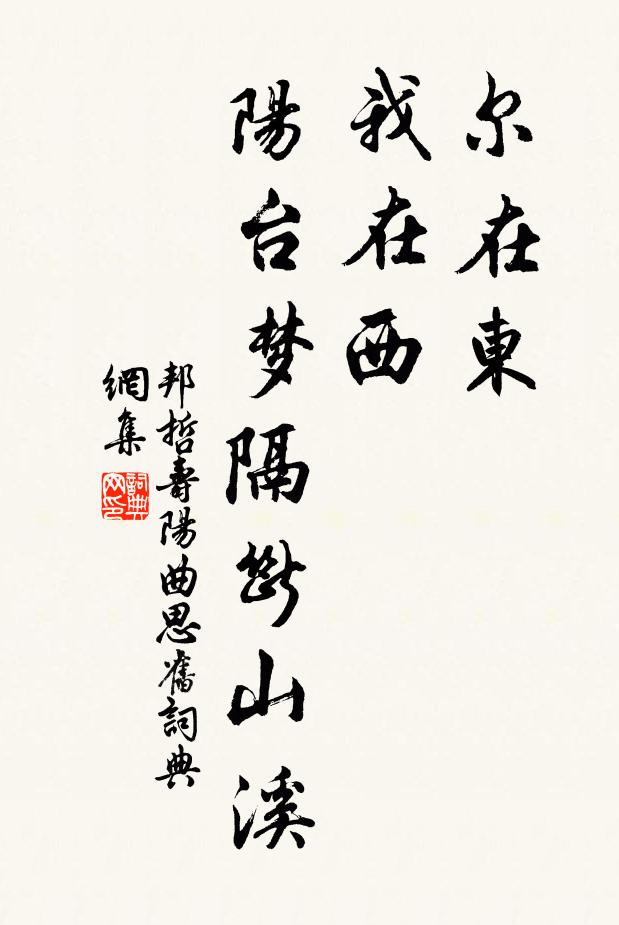 尔在東
我在西
陽台梦隔斷山溪
邦哲壽陽曲思舊詞典
網集
詞典网印